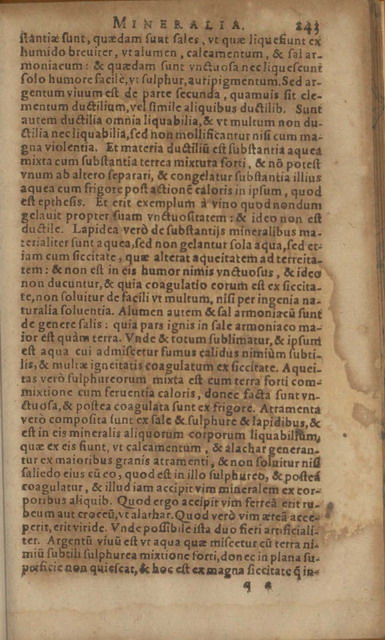 MINERALIA. 243
stantiæ sunt, quædam sunt sales, vt quæ liquefiunt ex
humido breuiter, vt alumen, calcamentum, & sal ar-
moniacum: & quædam sunt vnctuosa nec liquescunt
solo humore facile, vt sulphur, auripigmentum. Sed ar-
gentum viuum est de parte secunda, quamuis sit ele-
mentum ductilium, vel simile aliquibus ductilib. Sunt
autem ductilia omnia liquabilia, & vt multum non du-
ctilia nec liquabilia, sed non mollificantur nisi cum ma-
gna violentia. Et materia ductiliũ est substantia aquea
mixta cum substantia terrea mixtura forti, & nõ potest
vnum ab altero separari, & congelatur substantia illius
aquea cum frigore post actionẽ caloris in ipsum, quod
est epthesis. Et erit exemplum à vino quod nondum
gelauit propter suam vnctuositatem: & ideo non est
ductile. Lapidea verò de substantijs mineralibus ma-
terialiter sunt aquea, sed non gelantur sola aqua, sed et-
iam cum siccitate, quæ alterat aqueitatem ad terreita-
tem: & non est in eis humor nimis vnctuosus, & ideo
non ducuntur, & quia coagulatio eorum est ex siccita-
te, non soluitur de facili vt multum, nisi per ingenia na-
turalia soluentia. Alumen autem & sal armoniacũ sunt
de genere salis: quia pars ignis in sale armoniaco ma-
ior est quàm terra. Vnde & totum sublimatur, & ipsum
est aqua cui admiscetur fumus calidus nimiũm subti-
lis, & multæ igneitatis coagulatum ex siccitate. Aquei-
tas verò sulphureorum mixta est cum terra forti com-
mixtione cum feruentia caloris, donec facta sunt vn-
ctuosa, & postea coagulata sunt ex frigore. Atramenta
verò composita sunt ex sale & sulphure & lapidibus, &
est in eis mineralis aliquorum corporum liquabilium,
quæ ex eis fiunt, vt calcamentum, & alachar generan-
tur ex maioribus granis atramenti, & non soluitur nisi
saliedo eius cũ eo, quod est in illo sulphureo, & postea
coagulatur, & illud iam accipit vim mineralem ex cor-
poribus aliquib. Quod ergo accipit vim ferreã erit ru-
beum aut croceũ, vt alathar. Quod verò vim æreã acce-
peris, erit viride. Vnde possibile ista duo fieri artificiali-
ter. Argentũ viuũ est vt aqua quæ miscetur cũ terra ni-
miũ subtili sulphurea mixtione forti, donec in plana su-
perficie non quiescat, & hoc est ex magna siccitate q̃ in-